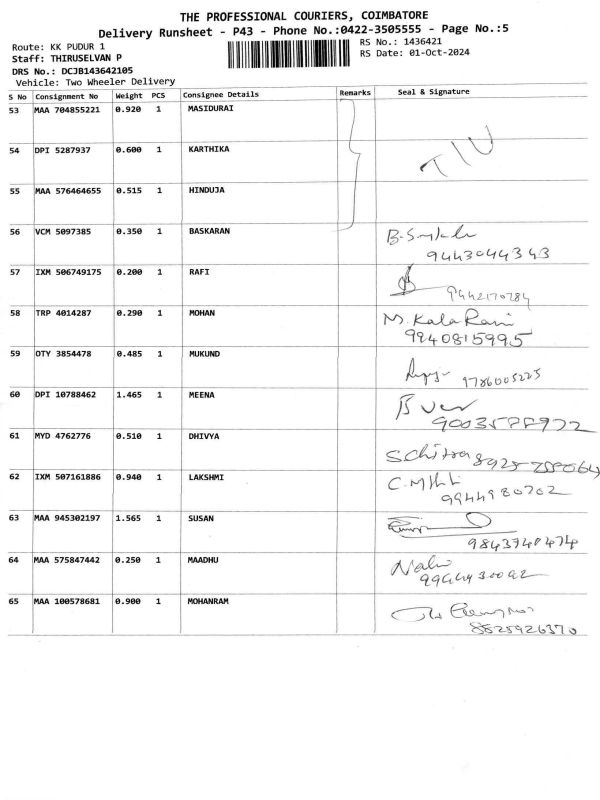 THE PROFESSIONAL COURIERS, COIMBATORE
Delivery Runsheet - P43 - Phone No.:0422-3505555 - Page No.:5
Route: KK PUDUR 1
RS No.: 1436421
Staff: THIRUSELVAN P
RS Date: 01-Oct-2024
DRS No.: DCJB143642105
Vehicle: Two Wheeler Delivery
S No Consignment No Weight PCS Consignee Details Remarks Seal & Signature
53 MAA 704855221 0.920 1 MASIDURAI
54 DPI 5287937 0.600 1 KARTHIKA
55 MAA 576464655 0.515 1 HINDUJA
56 VCM 5097385 0.350 1 BASKARAN
9443044343
57 IXM 506749175 0.200 1 RAFI
9442170784
58 TRP 4014287 0.290 1 MOHAN M. Kala Rani
9940815995
59 OTY 3854478 0.485 1 MUKUND
9786005225
60 DPI 10788462 1.465 1 MEENA
61 MYD 4762776 0.510 1 DHIVYA S Chitra
62 IXM 507161886 0.940 1 LAKSHMI
9944980702
63 MAA 945302197 1.565 1 SUSAN
9843740474
64 MAA 575847442 0.250 1 MAADHU
65 MAA 100578681 0.900 1 MOHANRAM
8825926370